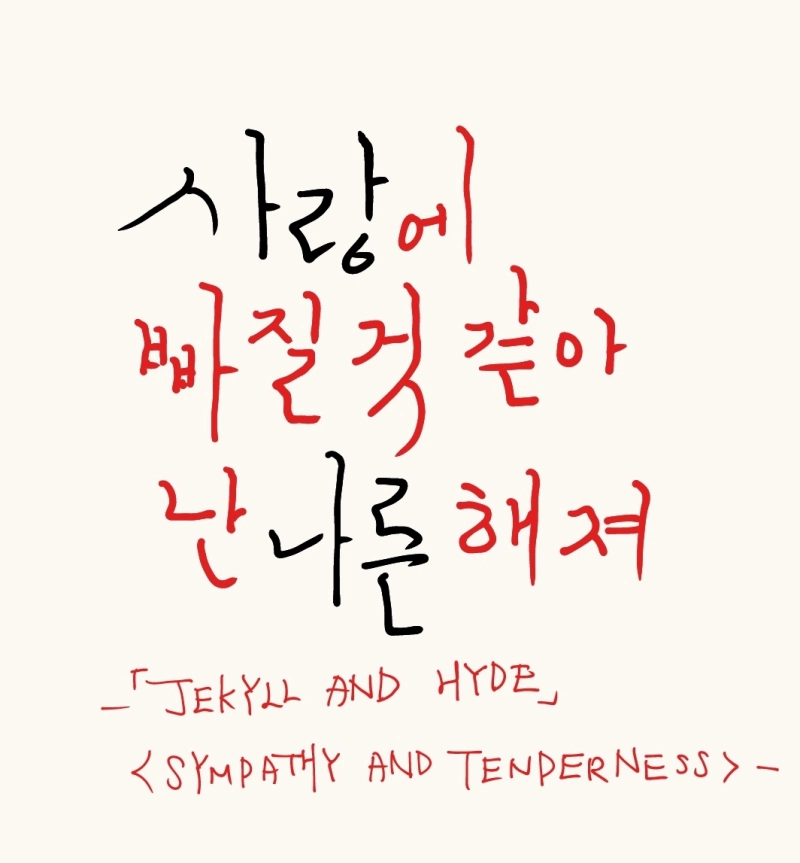 사랑에
빠질 것 같아
난 나른해져
-「JEKYLL AND HYDE」
<SYMPATHY AND TENDERNESS>-